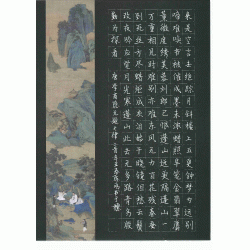 來是空言去絕踪月斜樓上五更鐘夢為遠別
啼難喚書被催成墨未濃蠟照半籠金翡翠麝
薰微度繡芙蓉劉郎已恨蓬山遠更隔蓬山一
萬重相見時難別亦難東風無力百花殘春蠶
到死絲方盡蠟炬成灰淚始乾曉鏡但愁雲鬢
改夜吟應覺月光寒蓬山此去無多路青鳥殷
勤為探看
唐李商隱無題七律二首